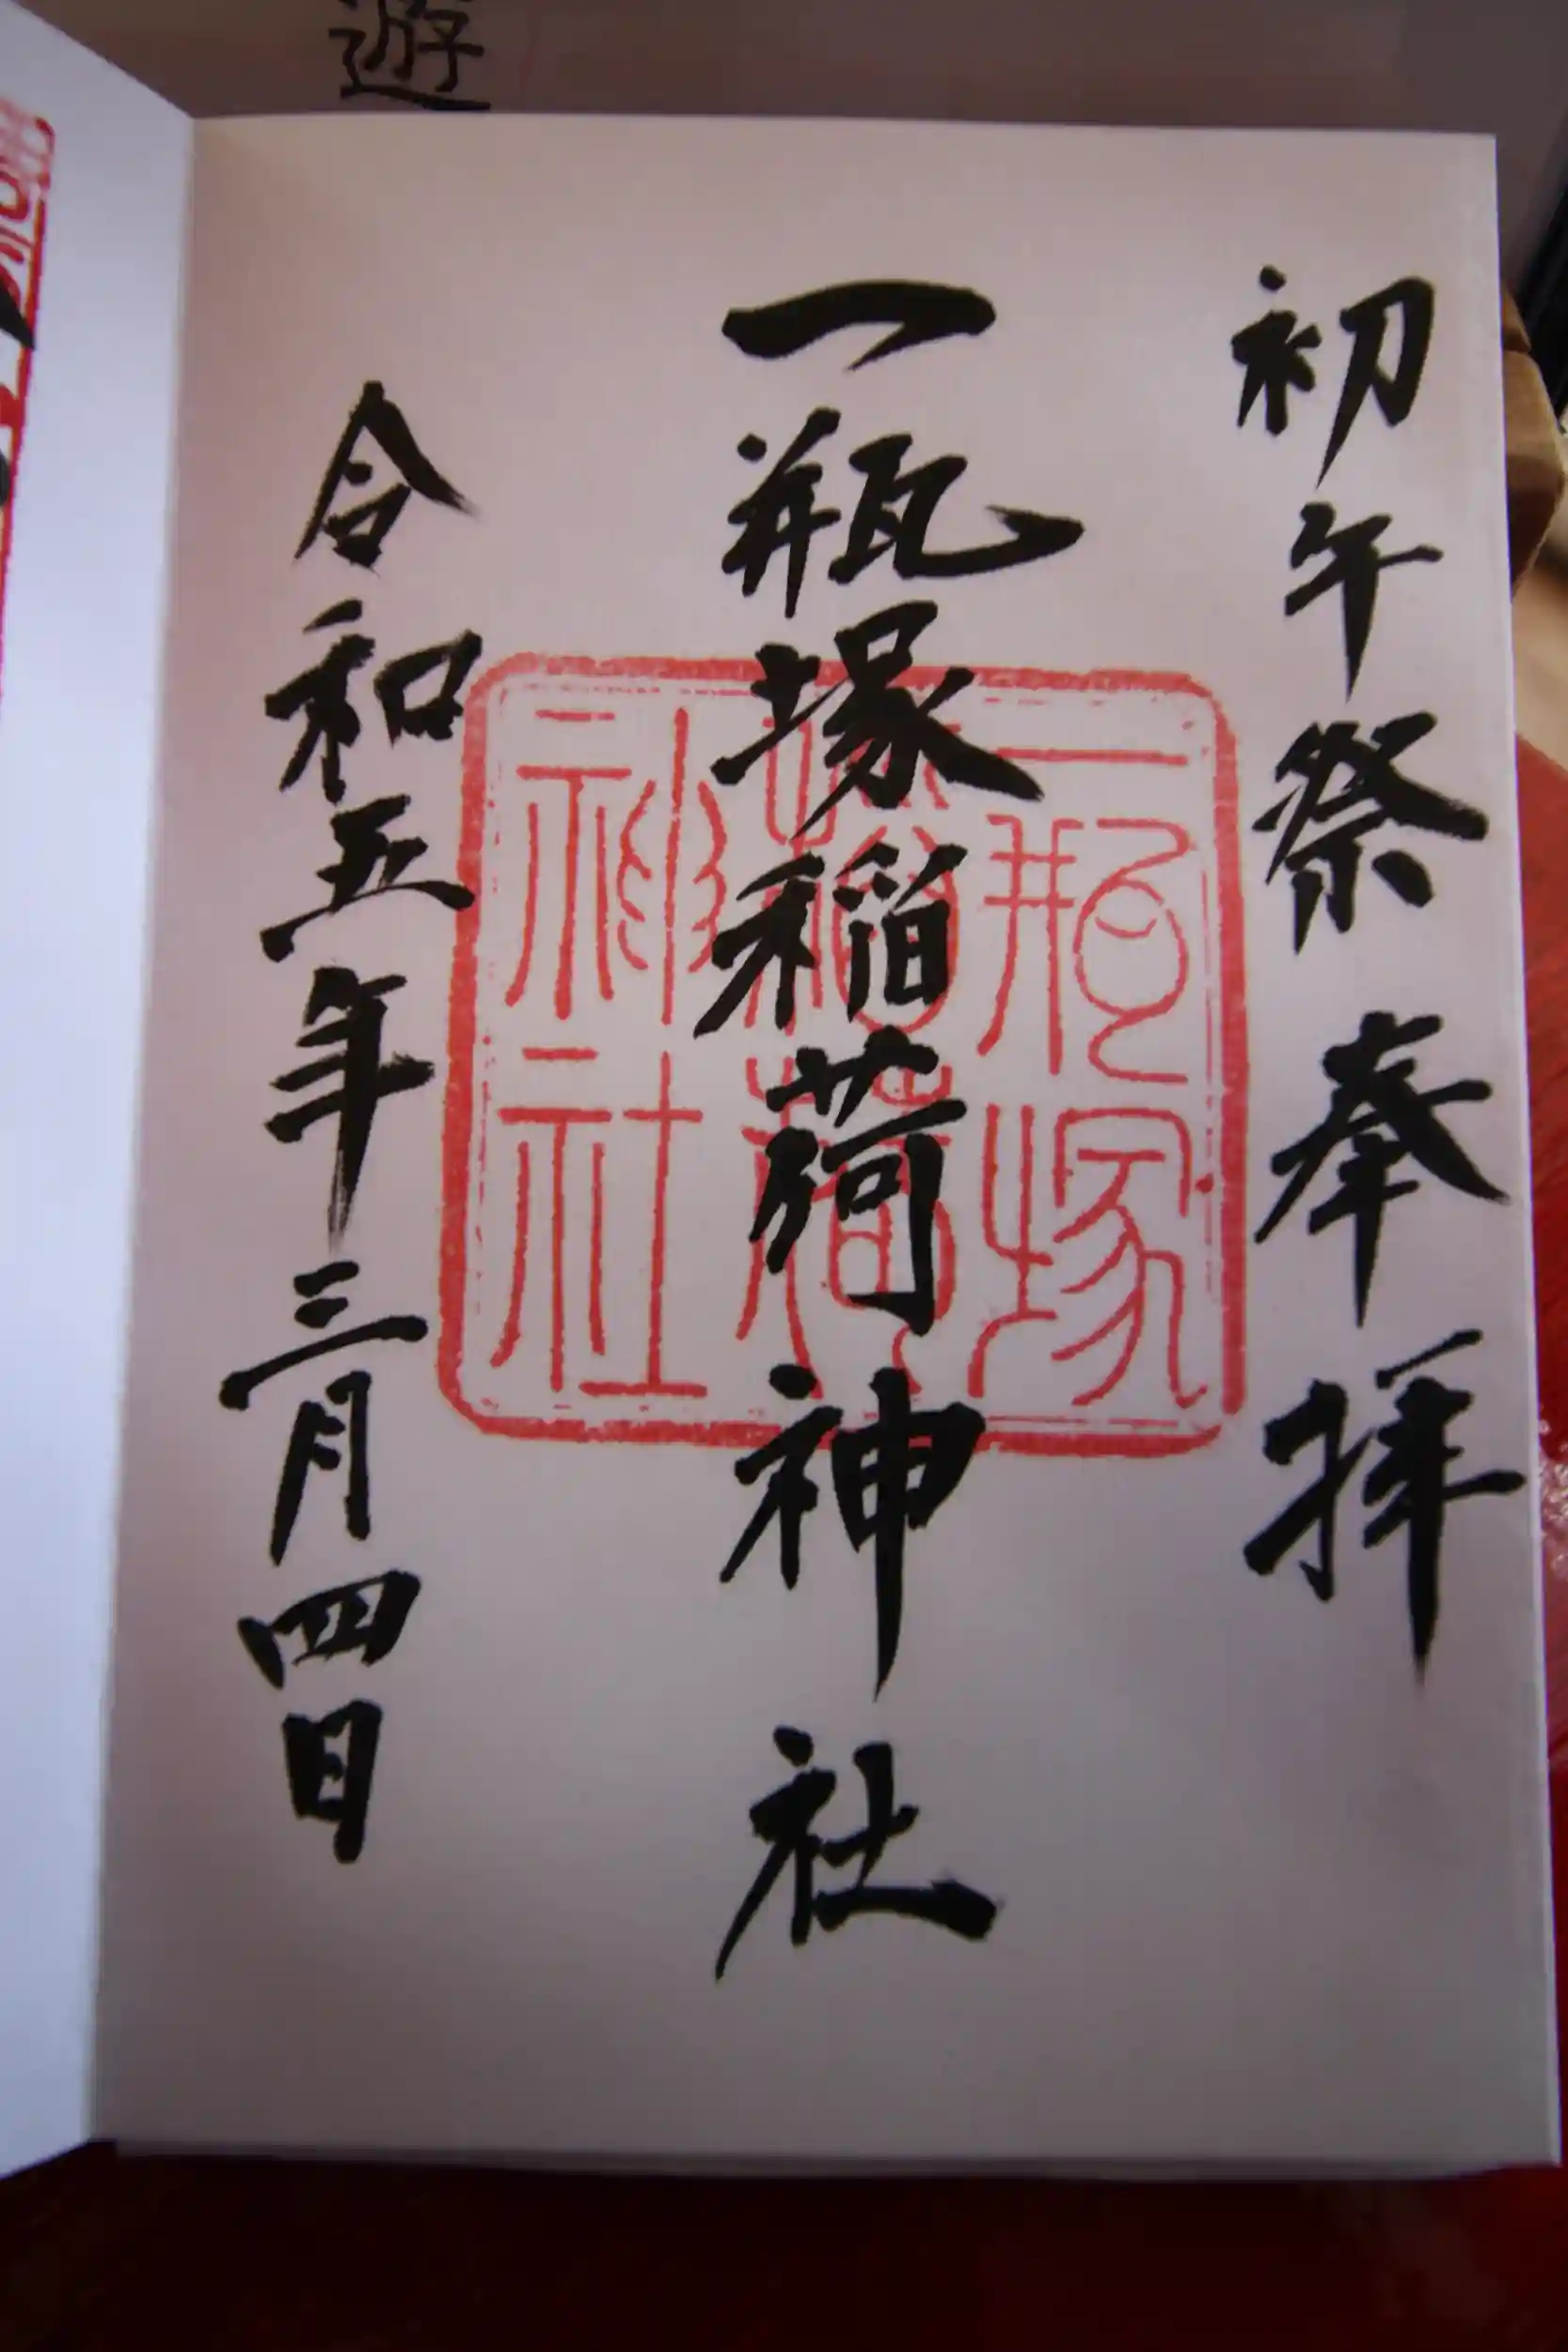 遊
初午祭 奉拝
一瓶塚稲荷神社
令和五年三月四日
一瓶塚
稲荷
神社